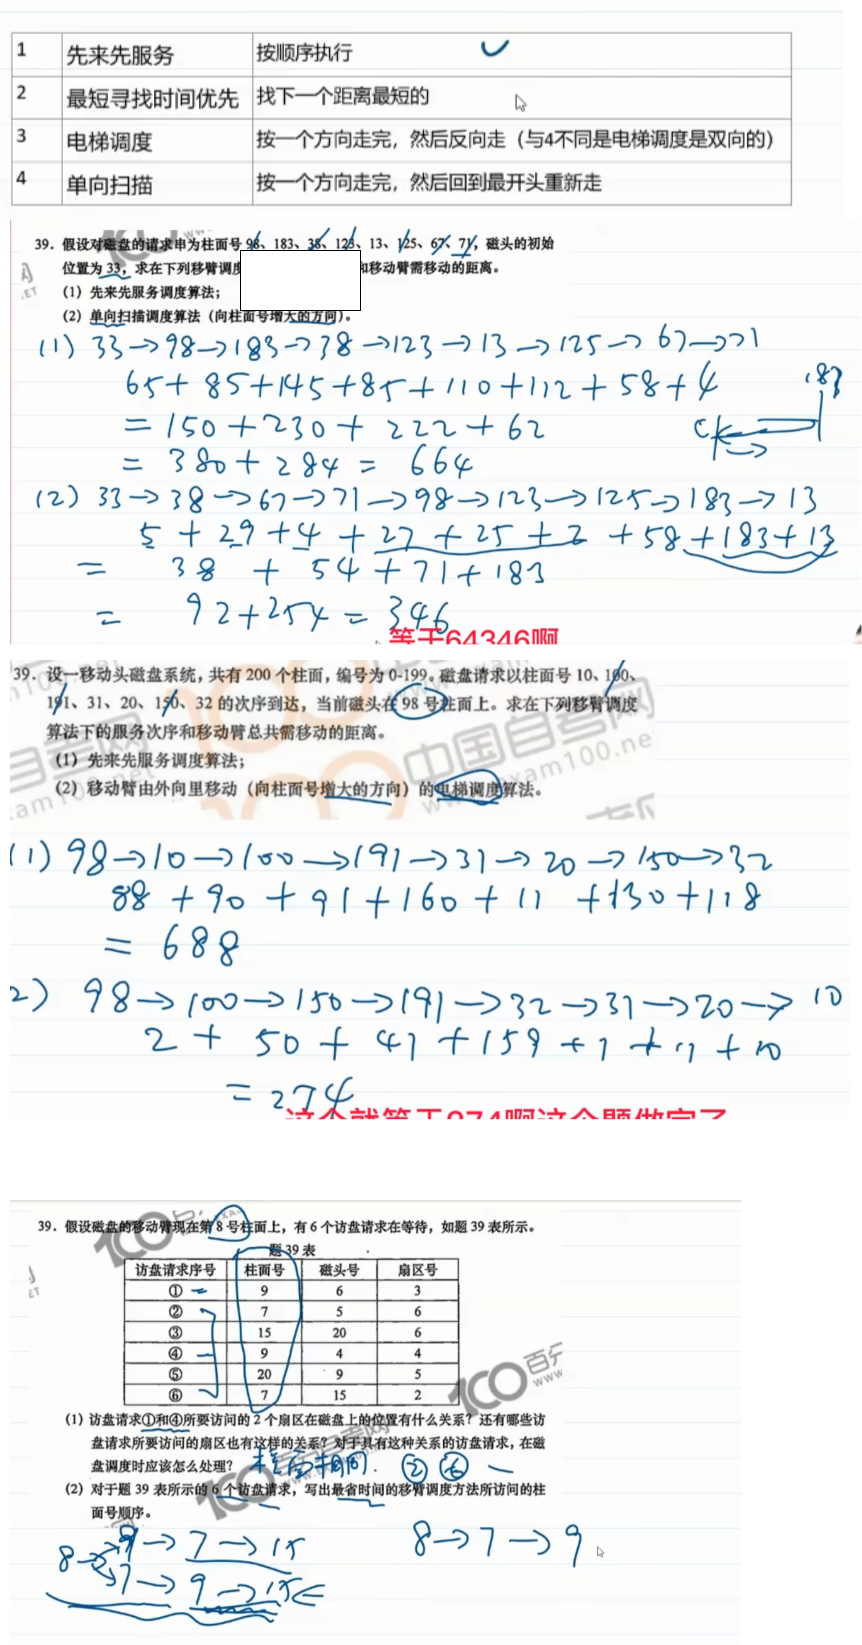 1 先来先服务 按顺序执行
2 最短寻找时间优先 找下一个距离最短的
3 电梯调度 按一个方向走完，然后反向走（与4不同是电梯调度是双向的）
4 单向扫描 按一个方向走完，然后回到最开头重新走
39. 假设对磁盘的请求串为柱面号 98、183、38、123、13、125、67、71，磁头的初始
位置为 33，求在下列移臂调度 和移动臂需移动的距离。
(1) 先来先服务调度算法；
(2) 单向扫描调度算法（向柱面号增大的方向）。
(1) 33→98→183→38→123→13→125→67→71
65+85+145+85+110+112+58+4
183
=150+230+222+62
=380+284=664
(2) 33→38→67→71→98→123→125→183→13
5+29+4+27+25+2+58+183+13
= 38+54+71+183
= 92+254=346
等于64346啊
39. 设一移动头磁盘系统，共有 200 个柱面，编号为 0-199。磁盘请求以柱面号 10、100、
191、31、20、150、32 的次序到达，当前磁头在 98 号柱面上。求在下列移臂调度
算法下的服务次序和移动臂总共需移动的距离。
(1) 先来先服务调度算法；
(2) 移动臂由外向里移动（向柱面号增大的方向）的电梯调度算法。
中国自考网
(1) 98→10→100→191→31→20→150→32
88+90+91+160+11+130+118
=688
2) 98→100→150→191→32→31→20→10
2+50+41+159+1+11+10
=274
这个就等于274啊这个题做完了
39. 假设磁盘的移动臂现在第 8 号柱面上，有 6 个访盘请求在等待，如题 39 表所示。
题 39 表
访盘请求序号 柱面号 磁头号 扇区号
① 9 6 3
② 7 5 6
③ 15 20 6
④ 9 4 4
⑤ 20 9 5
⑥ 7 15 2
(1) 访盘请求①和④所要访问的 2 个扇区在磁盘上的位置有什么关系？还有哪些访
盘请求所要访问的扇区也有这样的关系？对于具有这种关系的访盘请求，在磁
盘调度时应该怎么处理？ 柱面相同. ② ⑥
(2) 对于题 39 表所示的 6 个访盘请求，写出最省时间的移臂调度方法所访问的柱
面号顺序。
8→9→7→15 8→7→9
7→9→15